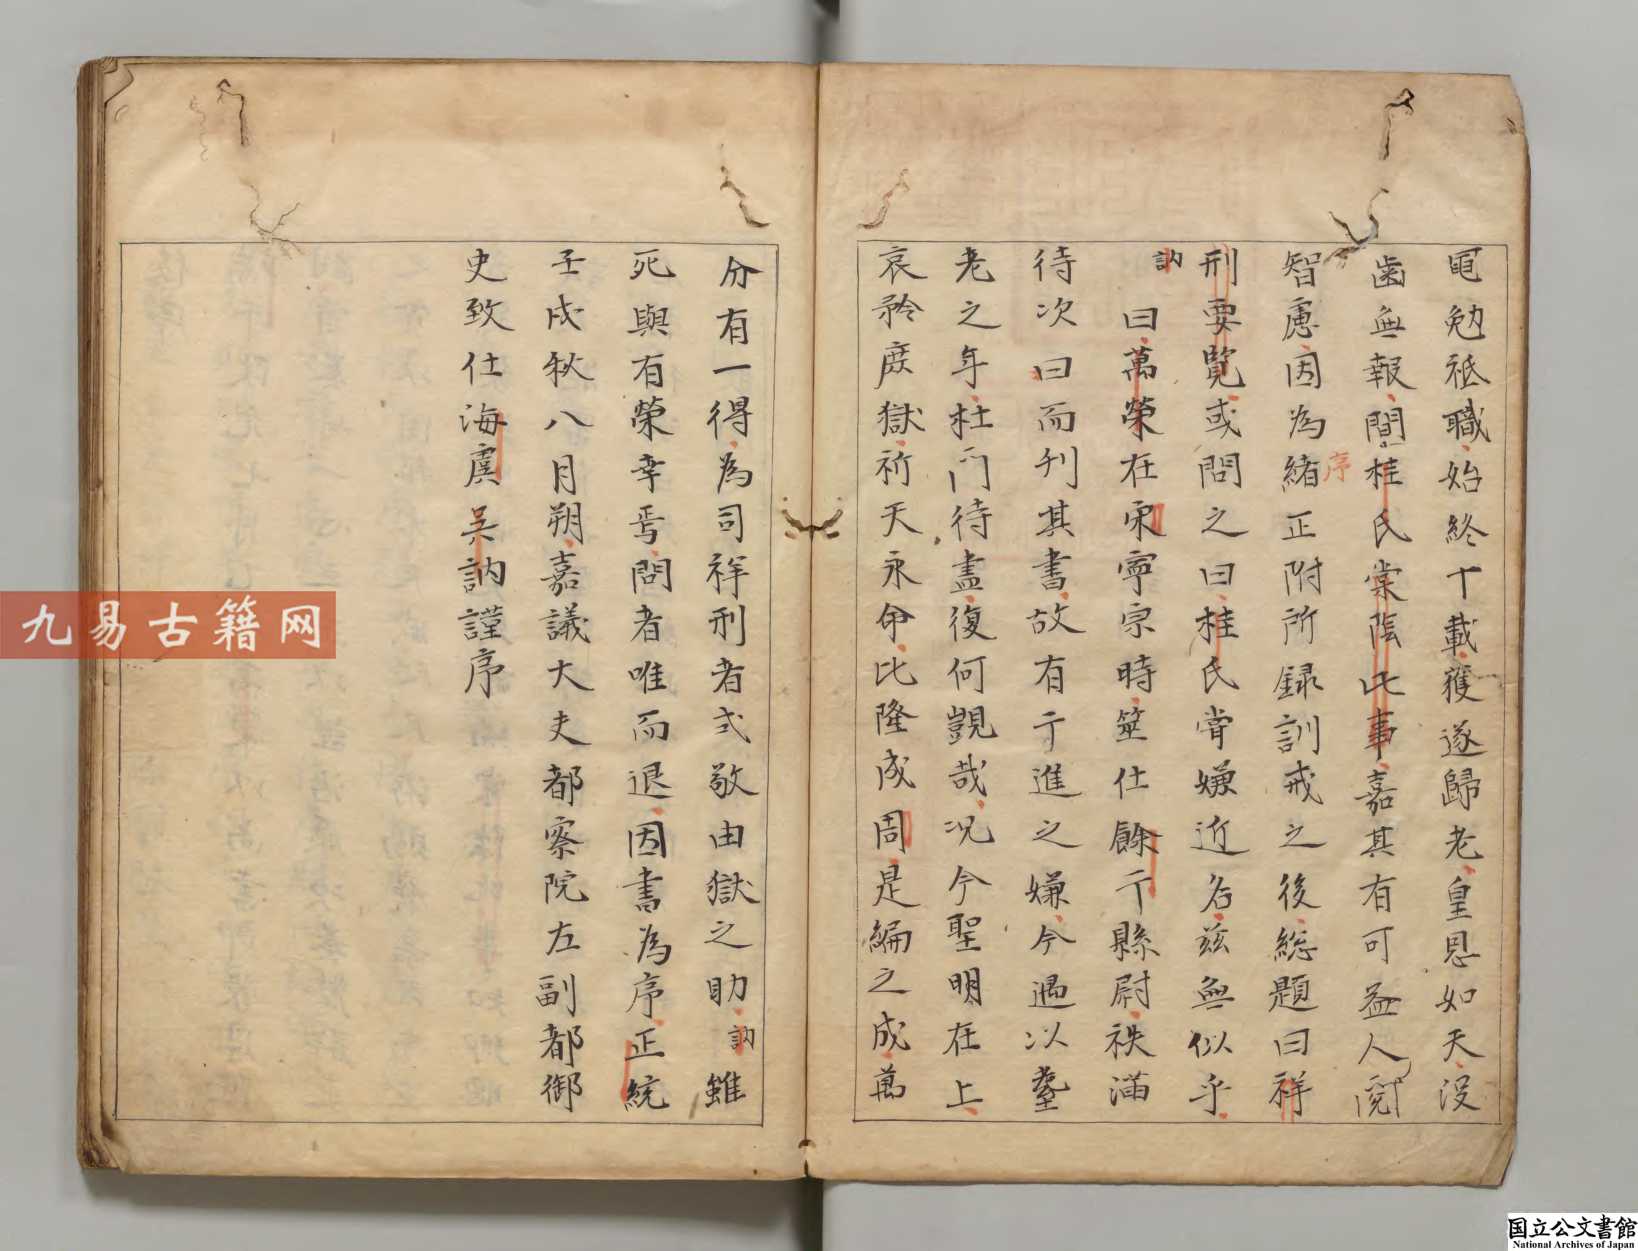 黽勉祗職始終十載獲遂歸老皇恩如天沒
齒無報間桂氏棠陰比事嘉其有可益人
智慮因為緒正附所録訓戒之後総題曰祥
序
刑要覽或問之曰桂氏甞嫌近名兹無似乎
訥
曰萬榮在宋寧宗時筮仕餘干縣尉秩滿
待次曰而刋其書故有于進之嫌今遇以耋
老之年杜門待盡復何覬哉况今聖明在上
哀矜庶獄祈天永命比隆成周是編之成萬
分有一得為司祥刑者式敬由獄之助訥雖
死與有榮幸焉問者唯而退因書為序正統
壬戌秋八月朔嘉議大夫都察院左副都御
史致仕海虞吴訥謹序
九易古籍网
国立公文書館
National Archives of Japan